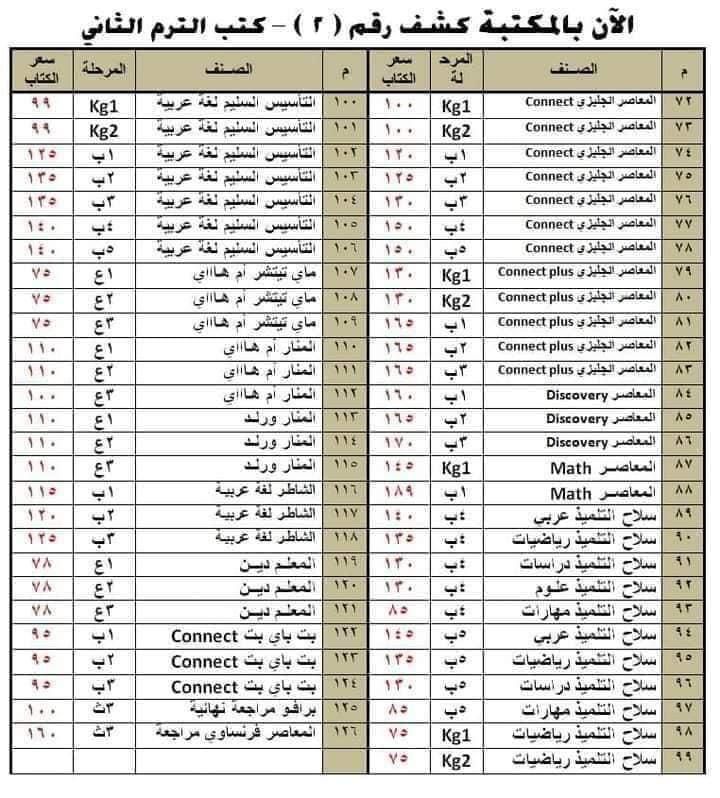 الآن بالمكتبة كشف رقم ( ٢ ) – كتب الترم الثاني
م الصنف المرحلة سعر الكتاب
٧٢ المعاصر انجليزي Connect Kg1 ١٠٠
٧٣ المعاصر انجليزي Connect Kg2 ١٠٠
٧٤ المعاصر انجليزي Connect ١ب ١٢٠
٧٥ المعاصر انجليزي Connect ٢ب ١٢٥
٧٦ المعاصر انجليزي Connect ٣ب ١٣٠
٧٧ المعاصر انجليزي Connect ٤ب ١٥٠
٧٨ المعاصر انجليزي Connect ٥ب ١٥٠
٧٩ المعاصر انجليزي Connect plus Kg1 ١٣٠
٨٠ المعاصر انجليزي Connect plus Kg2 ١٣٠
٨١ المعاصر انجليزي Connect plus ١ب ١٦٥
٨٢ المعاصر انجليزي Connect plus ٢ب ١٦٥
٨٣ المعاصر انجليزي Connect plus ٣ب ١٦٥
٨٤ المعاصر Discovery ١ب ١٦٠
٨٥ المعاصر Discovery ٢ب ١٦٥
٨٦ المعاصر Discovery ٣ب ١٧٠
٨٧ المعاصر Math Kg1 ١٤٥
٨٨ المعاصر Math ١ب ١٨٩
٨٩ سلاح التلميذ عربي ٤ب ١٤٠
٩٠ سلاح التلميذ رياضيات ٤ب ١٣٥
٩١ سلاح التلميذ دراسات ٤ب ١٣٠
٩٢ سلاح التلميذ علوم ٤ب ١٣٠
٩٣ سلاح التلميذ مهارات ٤ب ٨٥
٩٤ سلاح التلميذ عربي ٥ب ١٤٥
٩٥ سلاح التلميذ رياضيات ٥ب ١٣٥
٩٦ سلاح التلميذ دراسات ٥ب ١٣٠
٩٧ سلاح التلميذ مهارات ٥ب ٨٥
٩٨ سلاح التلميذ رياضيات Kg1 ٧٥
٩٩ سلاح التلميذ رياضيات Kg2 ٧٥
م الصنف المرحلة سعر الكتاب
١٠٠ التأسيس السليم لغة عربية Kg1 ٩٩
١٠١ التأسيس السليم لغة عربية Kg2 ٩٩
١٠٢ التأسيس السليم لغة عربية ١ب ١٢٥
١٠٣ التأسيس السليم لغة عربية ٢ب ١٣٥
١٠٤ التأسيس السليم لغة عربية ٣ب ١٣٥
١٠٥ التأسيس السليم لغة عربية ٤ب ١٤٠
١٠٦ التأسيس السليم لغة عربية ٥ب ١٤٠
١٠٧ ماي تيتشر أم هاااي ١ع ٧٥
١٠٨ ماي تيتشر أم هاااي ٢ع ٧٥
١٠٩ ماي تيتشر أم هاااي ٣ع ٧٥
١١٠ المنار أم هاااي ١ع ١١٠
١١١ المنار أم هاااي ٢ع ١١٠
١١٢ المنار أم هاااي ٣ع ١٠٠
١١٣ المنار ورلد ١ع ١١٠
١١٤ المنار ورلد ٢ع ١١٠
١١٥ المنار ورلد ٣ع ١١٠
١١٦ الشاطر لغة عربية ١ب ١١٥
١١٧ الشاطر لغة عربية ٢ب ١٢٠
١١٨ الشاطر لغة عربية ٣ب ١٢٥
١١٩ المعلم دين ١ع ٧٨
١٢٠ المعلم دين ٢ع ٧٨
١٢١ المعلم دين ٣ع ٧٨
١٢٢ بت باي بت Connect ١ب ٩٥
١٢٣ بت باي بت Connect ٢ب ٩٥
١٢٤ بت باي بت Connect ٣ب ٩٥
١٢٥ برافو مراجعة نهائية ٣ث ١٠٠
١٢٦ المعاصر فرنساوي مراجعة ٣ث ١٦٠